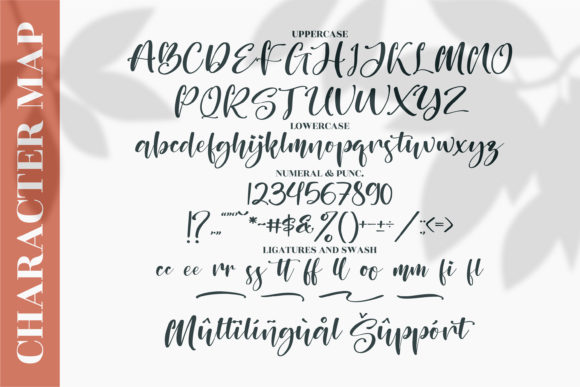 CHARACTER MAP
UPPERCASE
ABCDEFGHIJKLMNO
PQRSTUVWXYZ
LOWERCASE
abcdefghijklmnopqrstuvwxyz
NUMERAL & PUNC.
1234567890
!?.,„“”‘’"*~-#$&%()+–±÷/:;<=>
LIGATURES AND SWASH
cc ee rr ss tt ff ll oo mm fi fl
Mûltïlíñgùål Šûppórt